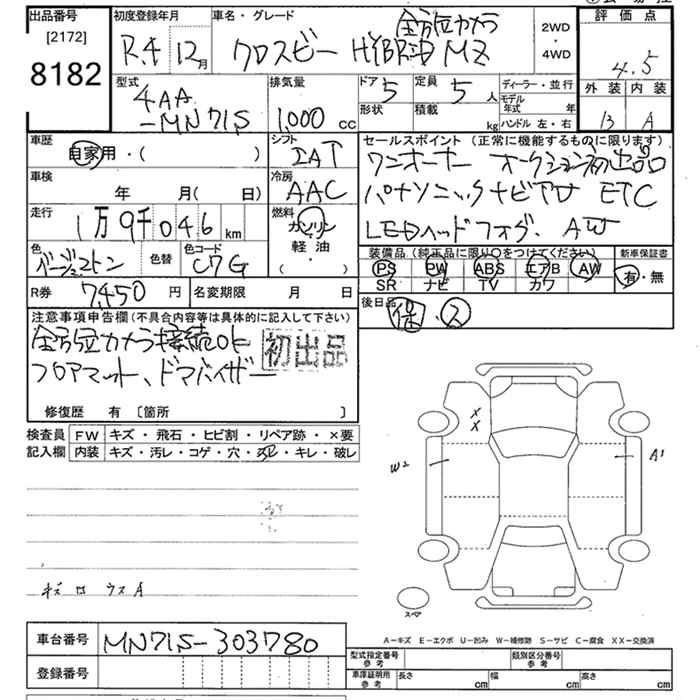 出品番号
[2172]
8182
初度登録年月
R.4 12月
車名・グレード
全方位カメラ
クロスビー HYBRID MZ
2WD
・
4WD
評価点
4.5
外装 内装
B A
型式
4AA
-MN71S
排気量
1,000 cc
ドア 5
定員 5 人
形状
積載 kg
ディーラー・並行
モデル年式 年
ハンドル 左・右
車歴
自家用・( )
シフト
IAT
セールスポイント (正常に機能するものに限ります)
ワンオーナー オークション初出品
パナソニックナビTV ETC
LEDヘッドフォグ. AW
車検
年 月( 日)
冷房
AAC
走行
1万9千046 km
燃料
ガソリン
軽油
・( )
色
ベージュストン
色替
色コード
C7G
装備品 (純正品に限り○をつけてください)
PS PW ABS エアB AW
SR ナビ TV カワ
新車保証書
有・無
R券 7,450 円
名変期限 月 日
後日品
保.ス
注意事項申告欄 (不具合内容等は具体的に記入して下さい)
全方位カメラ接続OK
フロアマット、ドアバイザー
初出品
修復歴 有 〔箇所 〕
検査員
記入欄
FW キズ・飛石・ヒビ割・リペア跡・×要
内装 キズ・汚レ・コゲ・穴・スレ・キレ・破レ
X
X
W2
A1
キズ ロ ウス A
スペア
A-キズ E-エクボ U-凹み W-補修跡 S-サビ C-腐食 XX-交換済
車台番号 MN71S-303780
登録番号
型式指定番号
参考
類別区分番号
参考
車庫証明用
参考
長さ cm
幅 cm
高さ cm